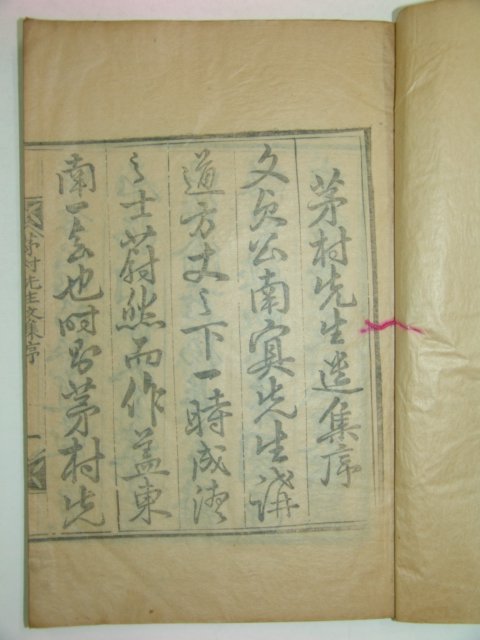 茅村先生遺集序
文貞公南冥先生講
道方丈之下一時成德
之士蔚然而作蓋東
南一會也時則茅村先
茅村先生文集序
一